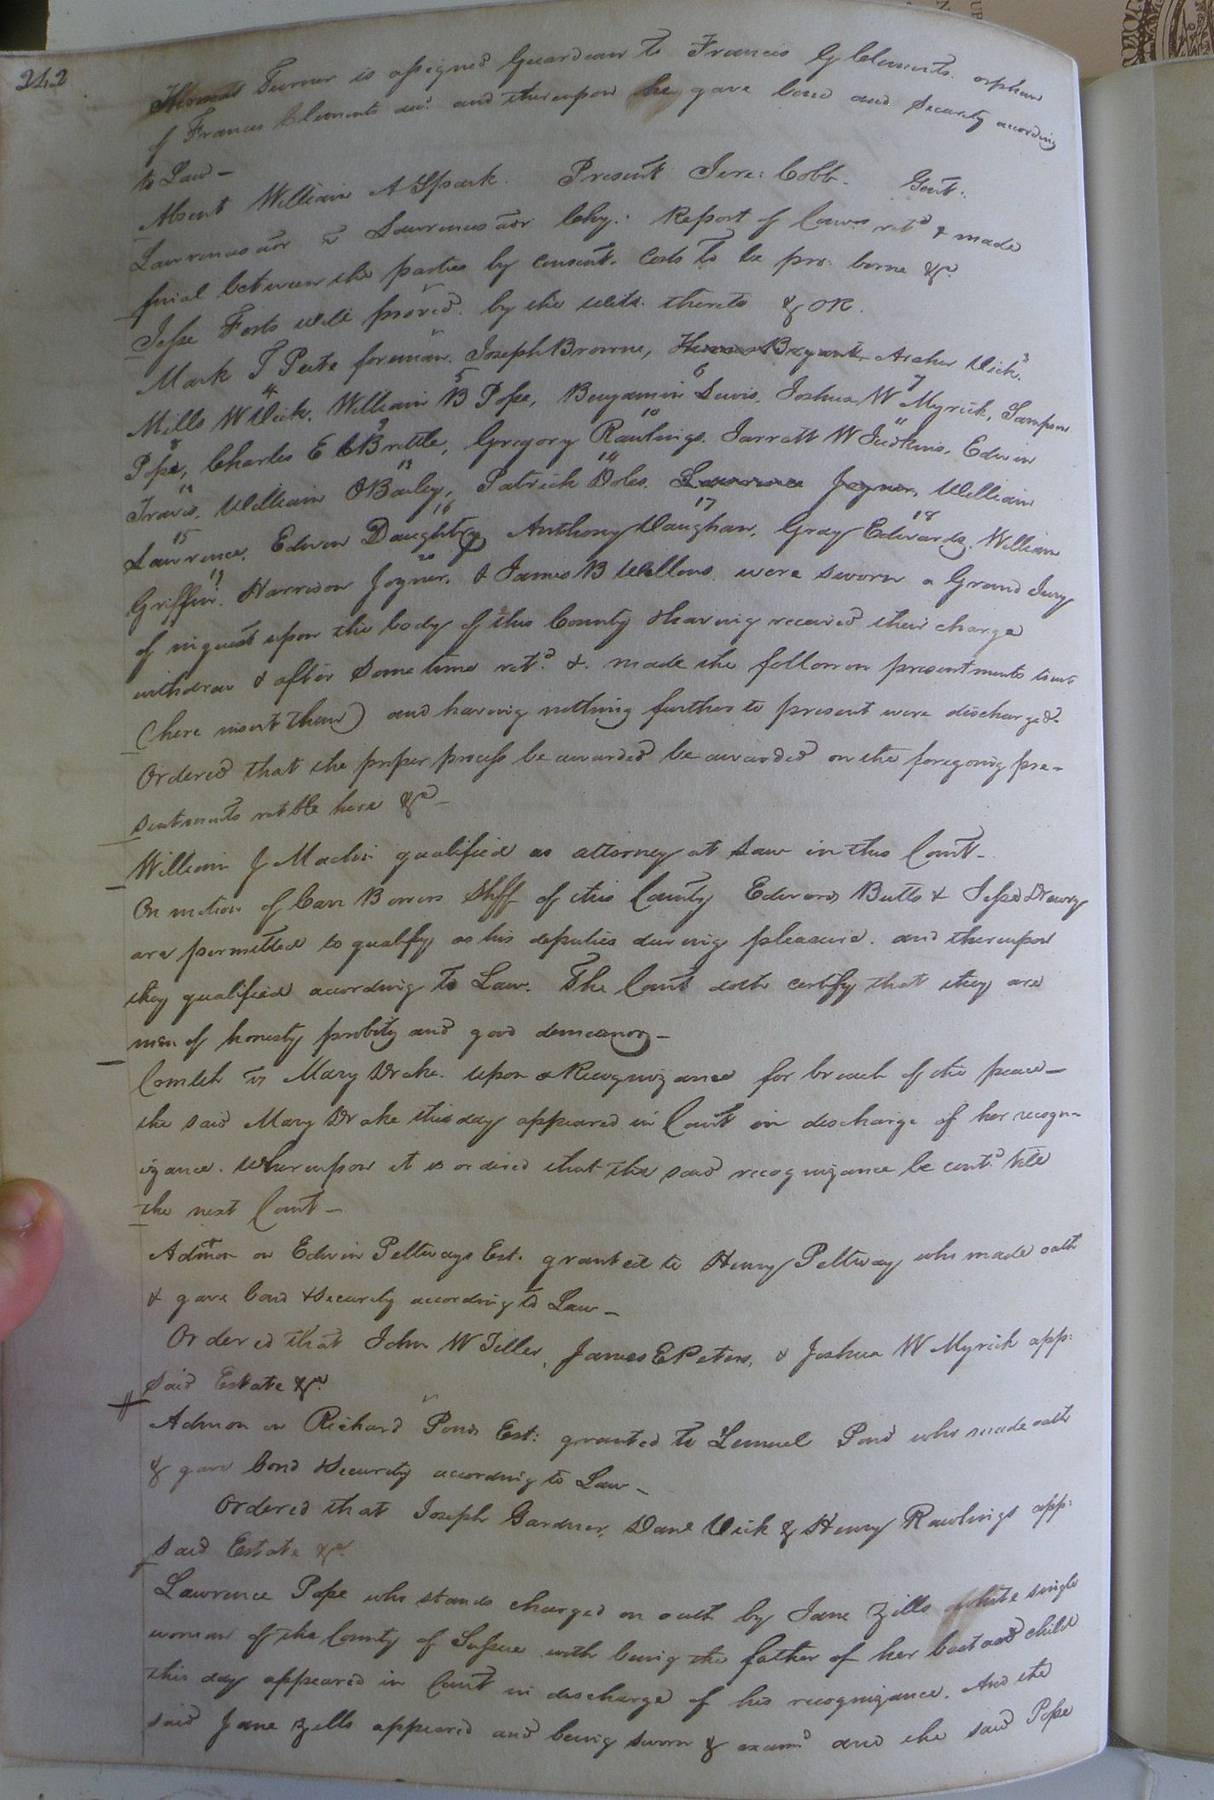 242
Thomas Turner is assigned Guardean to Frances G Clements orphan
of Frances Clements decd. and thereupon he gave bond and Security according
to Law —
Absent William A Spark. Present Jere: Cobb. Gent:
Lawrences adr vs Lawrences adr Chy: Report of Comrs retd & made
final between the parties by consent. Costs to be pro: borne &c
Jesse Forts will proved. by the wits. thereto & OR.
Mark T Peete foreman, Joseph Browne, Archer Vick, 3
4 5 6 7
Mills W Vick, William B Pope, Benjamin Lewis, Joshua W Myrick, Sampson
8 9 10 11
Pope, Charles E Brittle, Gregory Rawlings, Jarratt W Judkins, Edwin
12 13 14
Travis, William OBailey, Patrick Doles, Lawrence Joyner, William
15 16 17 18
Lawrence, Edwin Daughtry, Anthony Vaughan, Gray Edwards, William
19 20
Griffin, Harrison Joyner, & James B Wellons were sworn a Grand Jury
of inquest upon the body of this County & having received their charge
withdrew & after some time retd. & made the follow on presentments towit
(here insert them) and having nothing further to present were discharged.
Ordered that the proper process be awarded be awarded on the foregoing pre-
sentments retble here &c —
William J Maclin qualified as attorney at Law in this Court —
On motion of Carr Bowers Shff of this County Edward Butts & Jesse Drewry
are permitted to qualify as his deputies during pleasure. and thereupon
they qualified according to Law. The Court doth certify that they are
men of honesty probity and good demeanor —
Comlth vs Mary Drake. upon a Recognizance for breach of the peace —
the said Mary Drake this day appeared in Court in discharge of her recogn-
izance. Whereupon it is ordered that the said recognizance be contd till
the next Court —
Admon on Edwin Peltways Est. granted to Henry Peltway who made oath
& gave bond & Security according to Law —
Ordered that John W Teller, James E Peters, & Joshua W Myrick app:
said Estate &c
Admon on Richard Ponds Est: granted to Lemuel Pond who made oath
& gave bond & Security according to Law —
Ordered that Joseph Gardner, Danl Vick & Henry Rawlings app:
said Estate &c
Lawrence Pope who stands charged on oath by Jane Zills white single
woman of the County of Sussex with being the father of her bastard child
this day appeared in Court in discharge of his recognizance. And the
said Jane Zills appeared and being sworn & examd and the said Pope